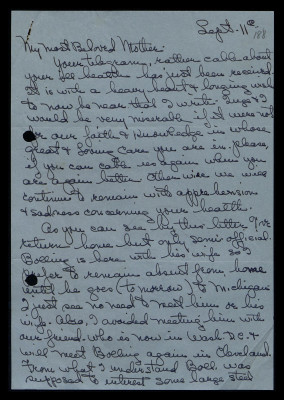 Sept. 11th
188
My most Beloved Mother:
Your telegram, rather cable about
your ill health has just been received.
It is with a heavy heart & longing wish
to now be near that I write. Inga & I
would be very miserable if it were not
for our faith & knowledge in whose
great & loving care you are in. Please,
if you can cable us again when you
are again better. Otherwise we will
continue to remain with apprehension
& sadness concerning your health.
As you can see by this letter I've
return home but only semi official.
Bolling is here with his wife so I
prefer to remain absent from home
until he goes (to morrow) to Michigan
I just see no need to meet him or his
wife. Also, I avoided meeting him with
our friend who is now in Wash. D.C. &
will meet Bolling again in Cleveland.
From what I understand Boll. was
supposed to interest some large steel